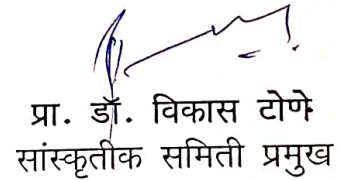 प्रा. डॉ. विकास टोणे
सांस्कृतीक समिती प्रमुख